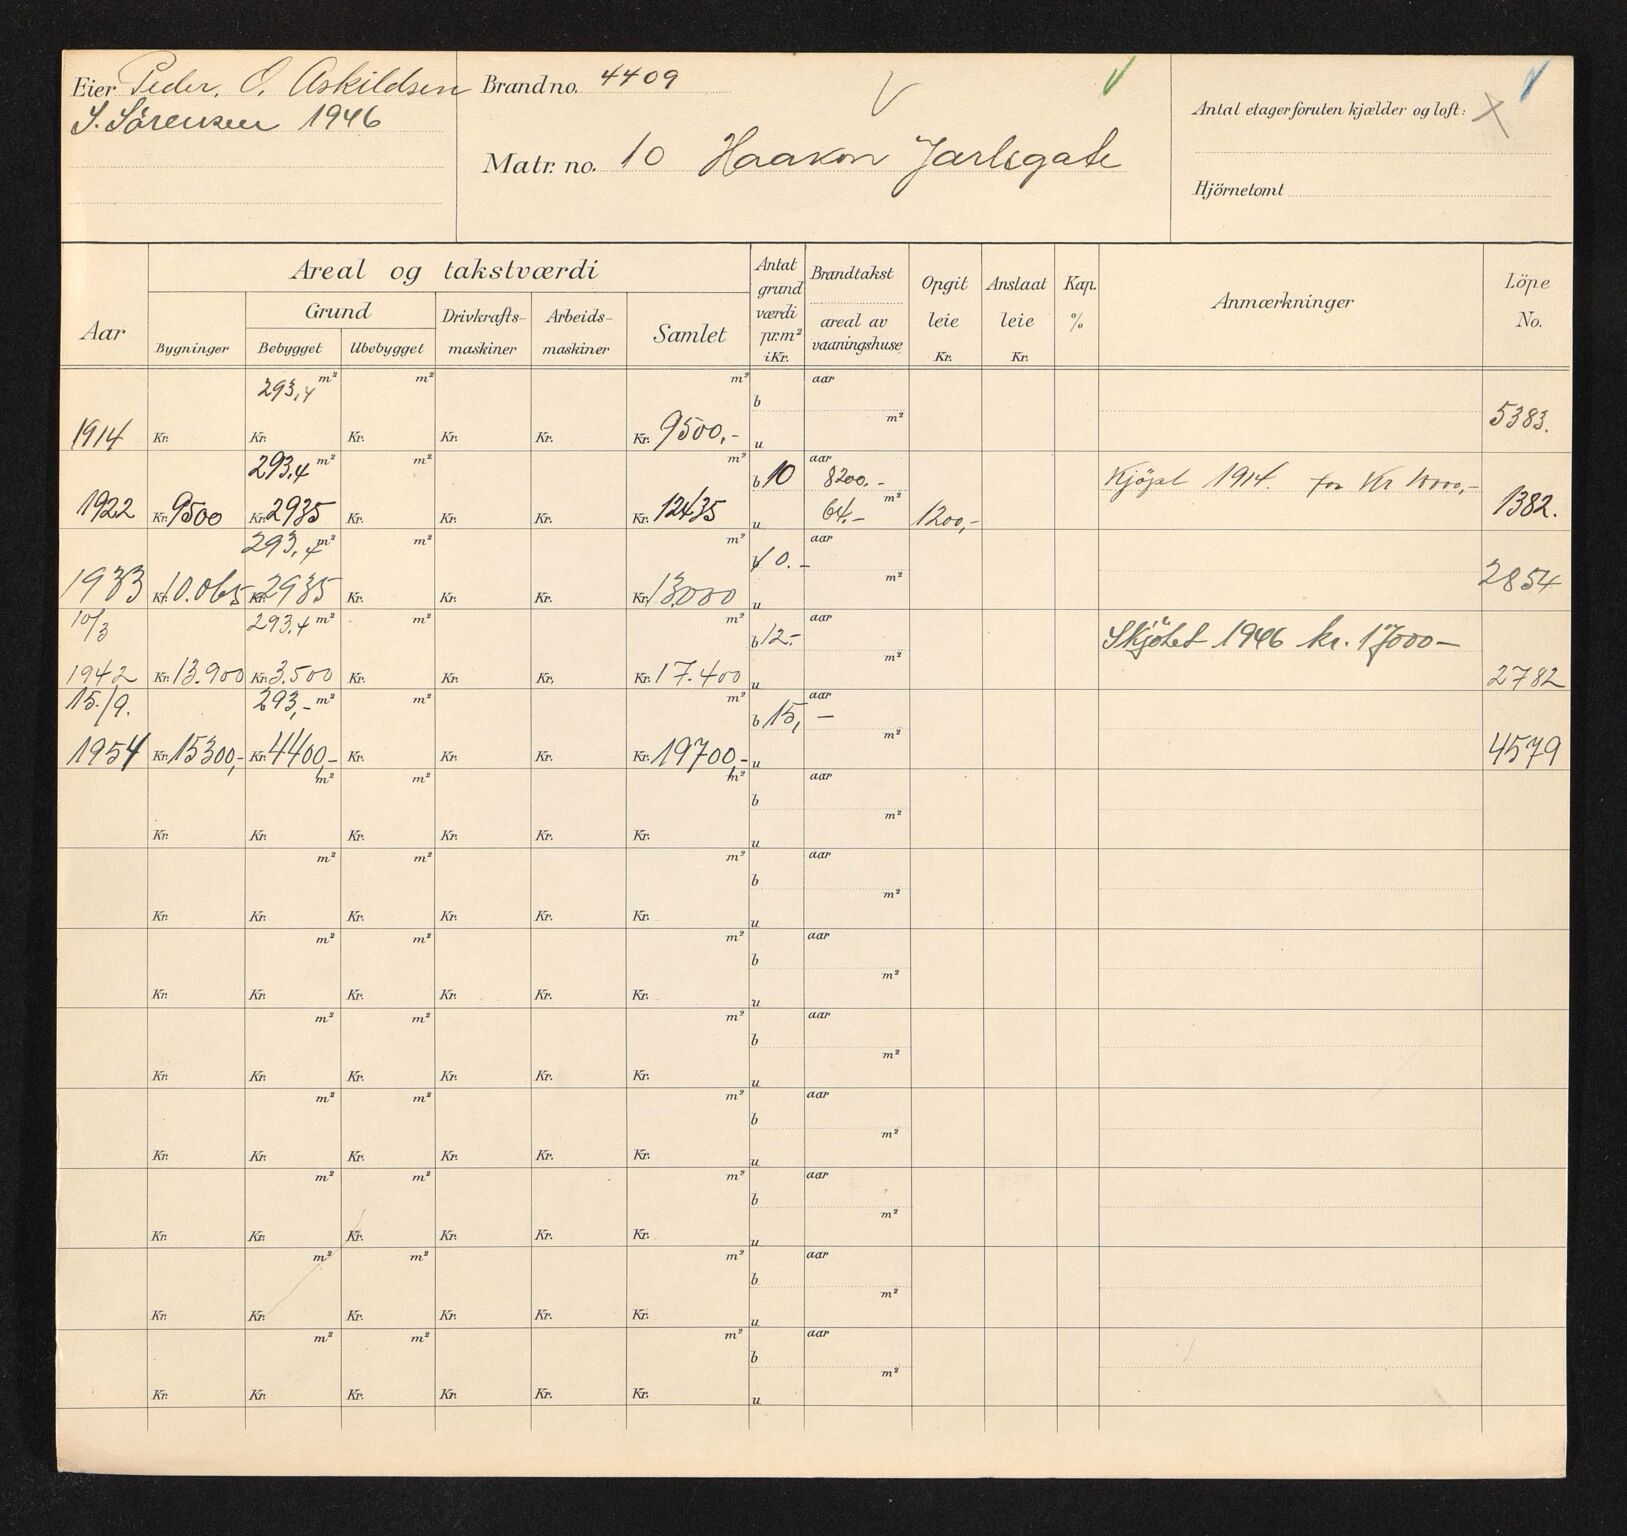 Eier Peder. O. Askildsen
S. Sörensen 1946
Brand no. 4409
Matr. no. 10 Haakon Jarlsgate
Antal etager foruten kjælder og loft:
Hjörnetomt
Aar
Areal og takstværdi
Bygninger
Grund
Bebygget Ubebygget
Drivkrafts-
maskiner
Arbeids-
maskiner
Samlet
Antat
grund
værdi
pr. m²
i Kr.
Brandtakst
areal av
vaaningshuse
Opgit
leie
Kr.
Anslaat
leie
Kr.
Kap.
%
Anmærkninger
Löpe
No.
293,4 m² m² m² aar
b
m²
1914 Kr. Kr. Kr. Kr. Kr. Kr. 9500,- u 5383.
293,4 m² m² m² b 10 aar 8200.- Kjöpt 1914. for Kr 10000,-
1922 Kr. 9500 Kr. 2935 Kr. Kr. Kr. Kr. 12435 u 64.- m² 1200,- 1382.
293,4 m² m² m² 10.- aar
m²
1933 Kr. 10.065 Kr. 2935 Kr. Kr. Kr. Kr. 13000 u 2854
10/3 293,4 m² m² m² b 12.- aar Skjötet 1946 kr. 17000-
m²
1942 Kr. 13.900 Kr. 3.500 Kr. Kr. Kr. Kr. 17.400 u 2782
15./9. 293,- m² m² m² b 15,- aar
m²
1954 Kr. 15300,- Kr. 4400,- Kr. Kr. Kr. Kr. 19700,- u 4579
m² m² m² aar
b
m²
Kr. Kr. Kr. Kr. Kr. Kr. u
m² m² m² aar
b
m²
Kr. Kr. Kr. Kr. Kr. Kr. u
m² m² m² aar
b
m²
Kr. Kr. Kr. Kr. Kr. Kr. u
m² m² m² aar
b
m²
Kr. Kr. Kr. Kr. Kr. Kr. u
m² m² m² aar
b
m²
Kr. Kr. Kr. Kr. Kr. Kr. u
m² m² m² aar
b
m²
Kr. Kr. Kr. Kr. Kr. Kr. u
m² m² m² aar
b
m²
Kr. Kr. Kr. Kr. Kr. Kr. u
m² m² m² aar
b
m²
Kr. Kr. Kr. Kr. Kr. Kr. u